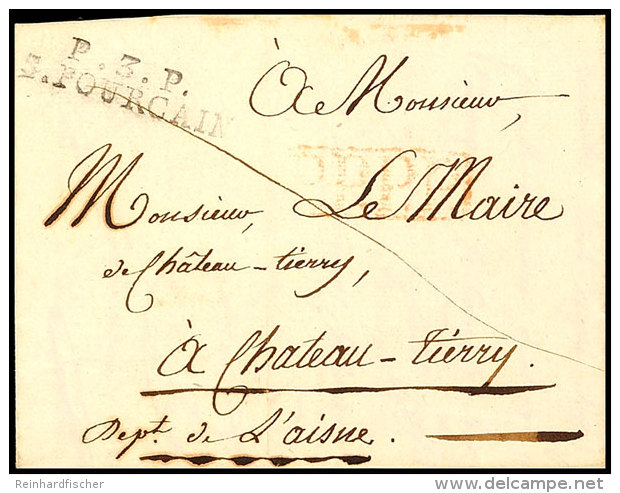 P. 3. P.
S. POURCAIN
À Monsieur,
Monsieur, Le Maire
de Château-tierry,
À Chateau-tièrry.
Dept. de L'aisne.
Reinhardfischer
delcampe.net